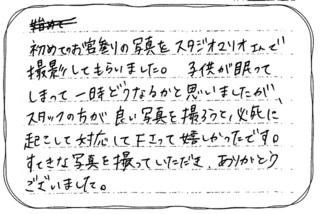 初めてのお宮参りの写真をスタジオマリオさんで
撮影してもらいました。 子供が眠って
しまって一時どうなるかと思いましたが、
スタッフの方が良い写真を撮ろうと、必死に
起こして対応して下さって嬉しかったです。
すてきな写真を撮っていただき、ありがとう
ございました。